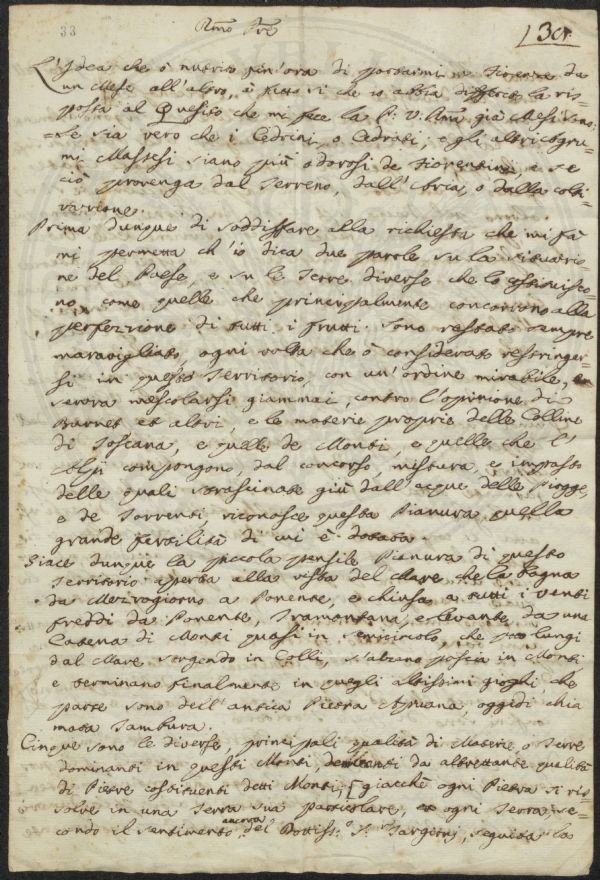 33
Rmo Pre
130r.
L'Idea che ò nutrito fin'ora di portarmi in Fiorenza da
un Mese all'altro, à fatto sì che io abbia differito la ris-
posta al Quesito che mi fece la P: V. Rma già Mesi sono;
Se sia vero che i Cedrini, o Cedrati, e gli altri Agru-
mi Massesi siano più odorosi de Fiorentini, e se
ciò provenga dal Terreno, dall'Aria, o dalla colti-
vazione.
Prima dunque di soddisfare alla richiesta che mi fà
mi permetta ch'io dica due parole su la situazio-
ne del Paese, e su le Terre diverse che lo costituisco-
no, come quelle che principalmente concorrono alla
perfezzione di tutti i frutti. Sono restato sempre
maravigliato, ogni volta che ò considerato restringer-
si in questo Territorio, con un'ordine mirabile,
senza mescolarsi giammai, contro l'opinione di
Burnet et altri, e le materie proprie delle Colline
di Toscana, e quelle de Monti, e quelle che l'
Alpi compongono, dal concorso, mistura, e impasto
delle quali strascinate giù dall'acque delle Piogge,
e de Torrenti, riconosce questa Pianura quella
grande fertilità di cui è dotata.
Giace dunque la piccola pensile Pianura di questo
Territorio aperta alla vista del Mare che la bagna
da Mezzogiorno a Ponente, e chiusa a tutti i venti
freddi da Ponente, Tramontana, e Levante da una
Catena di Monti quasi in semicircolo, che poco lungi
dal Mare sorgendo in Colli, s'alzano poscia in Monti
e terminano finalmente in quegli altissimi gioghi, che
parte sono dell'antica Pietra Apuana, oggidì chia
mata Tambura.
Cinque sono le diverse, principali qualità di Materie, o Terre
dominanti in questi Monti, derivanti da altrettante qualità
di Pietre costituenti detti Monti, [giacchè ogni Pietra si ris-
solve in una Terra sua particolare, et ogni Terra, se-
condo il sentimento ancora del Dottiss:o S.r Targioni, seguita la